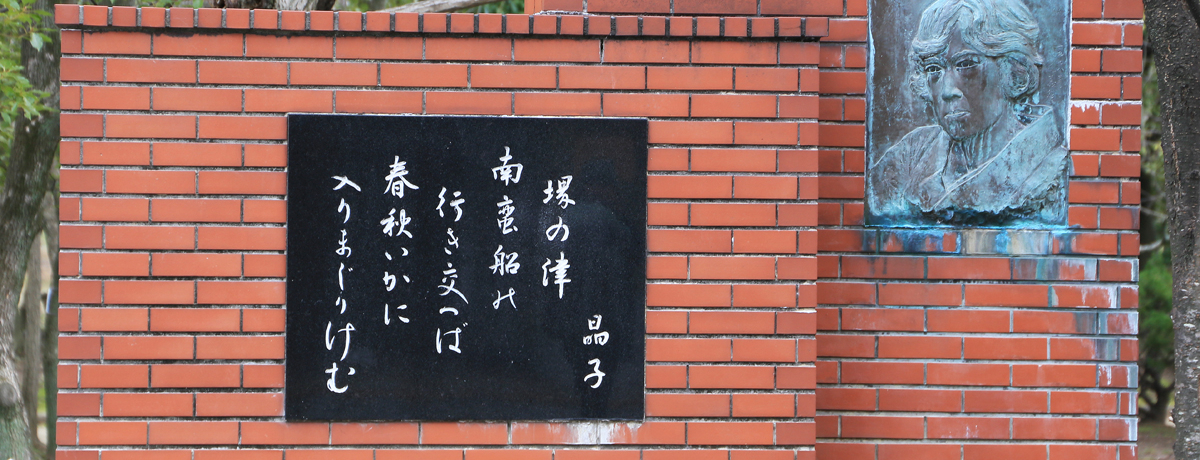 晶子
堺の津
南蛮船の
行き交へば
春秋いかに
入りまじりけむ